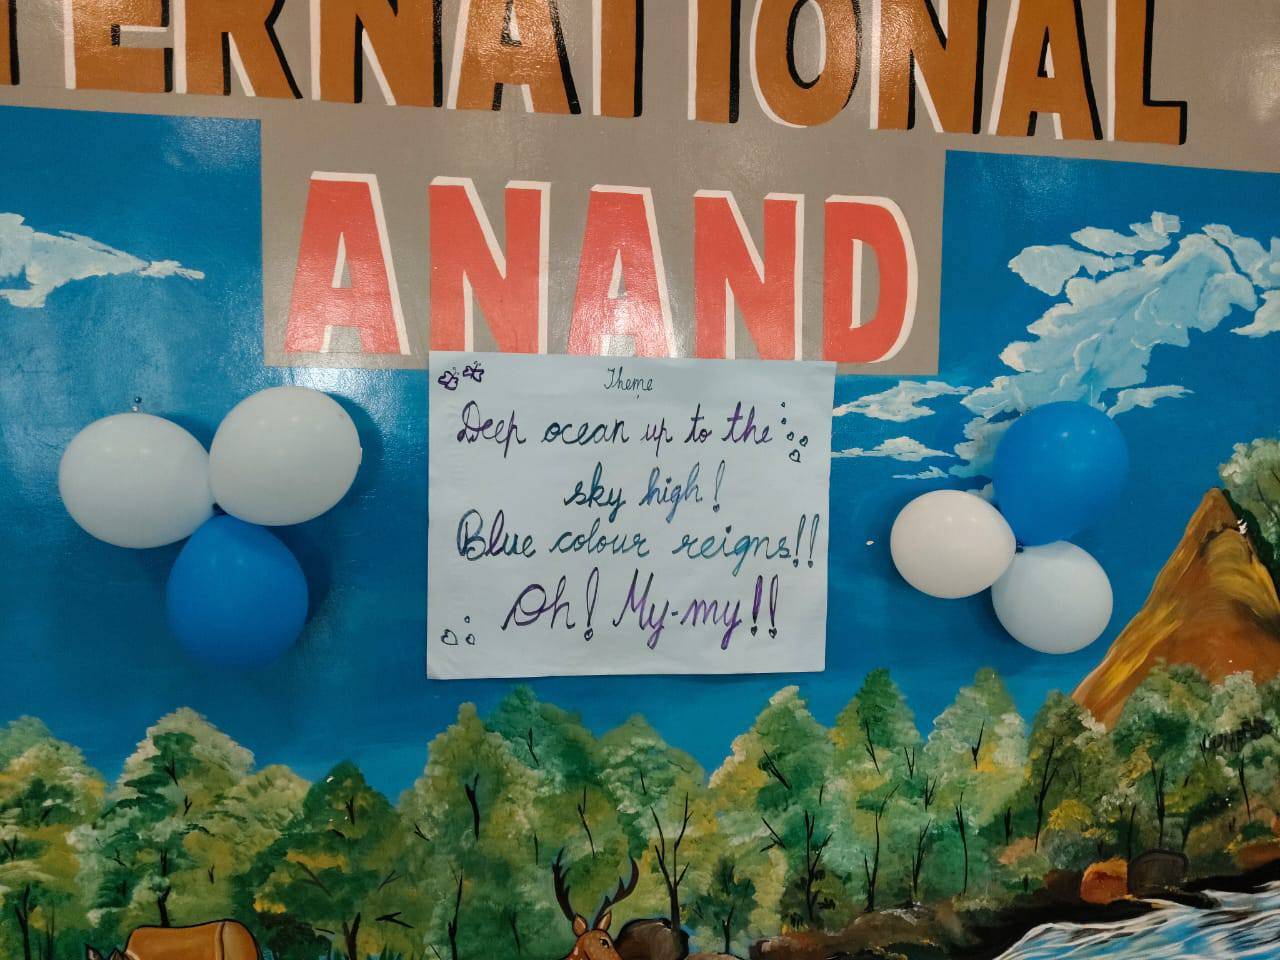 TERNATIONAL
ANAND
Theme
Deep ocean up to the
sky high!
Blue colour reigns!!
Oh! My-my!!